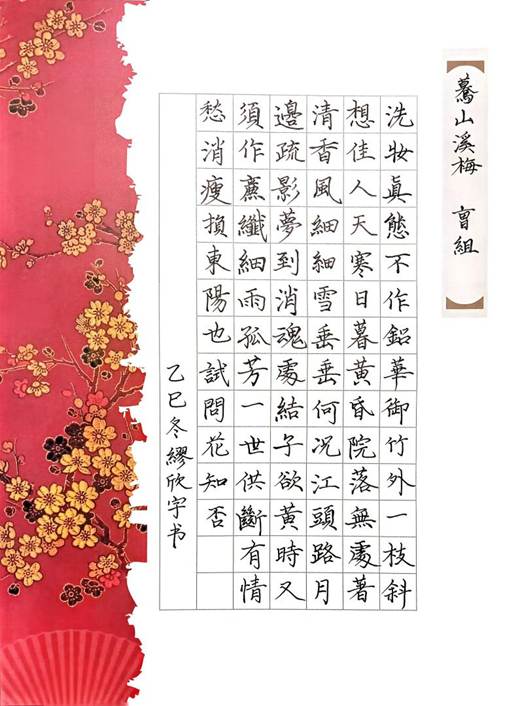 驀山溪梅 曺組
洗妝眞態不作鉛華御竹外一枝斜
想佳人天寒日暮黃昏院落無處著
清香風細細雪垂垂何况江頭路月
邊疏影夢到消魂處結子欲黃時又
須作廉纖細雨孤芳一世供斷有情
愁消瘦損東陽也試問花知否
乙巳冬繆欣宇书